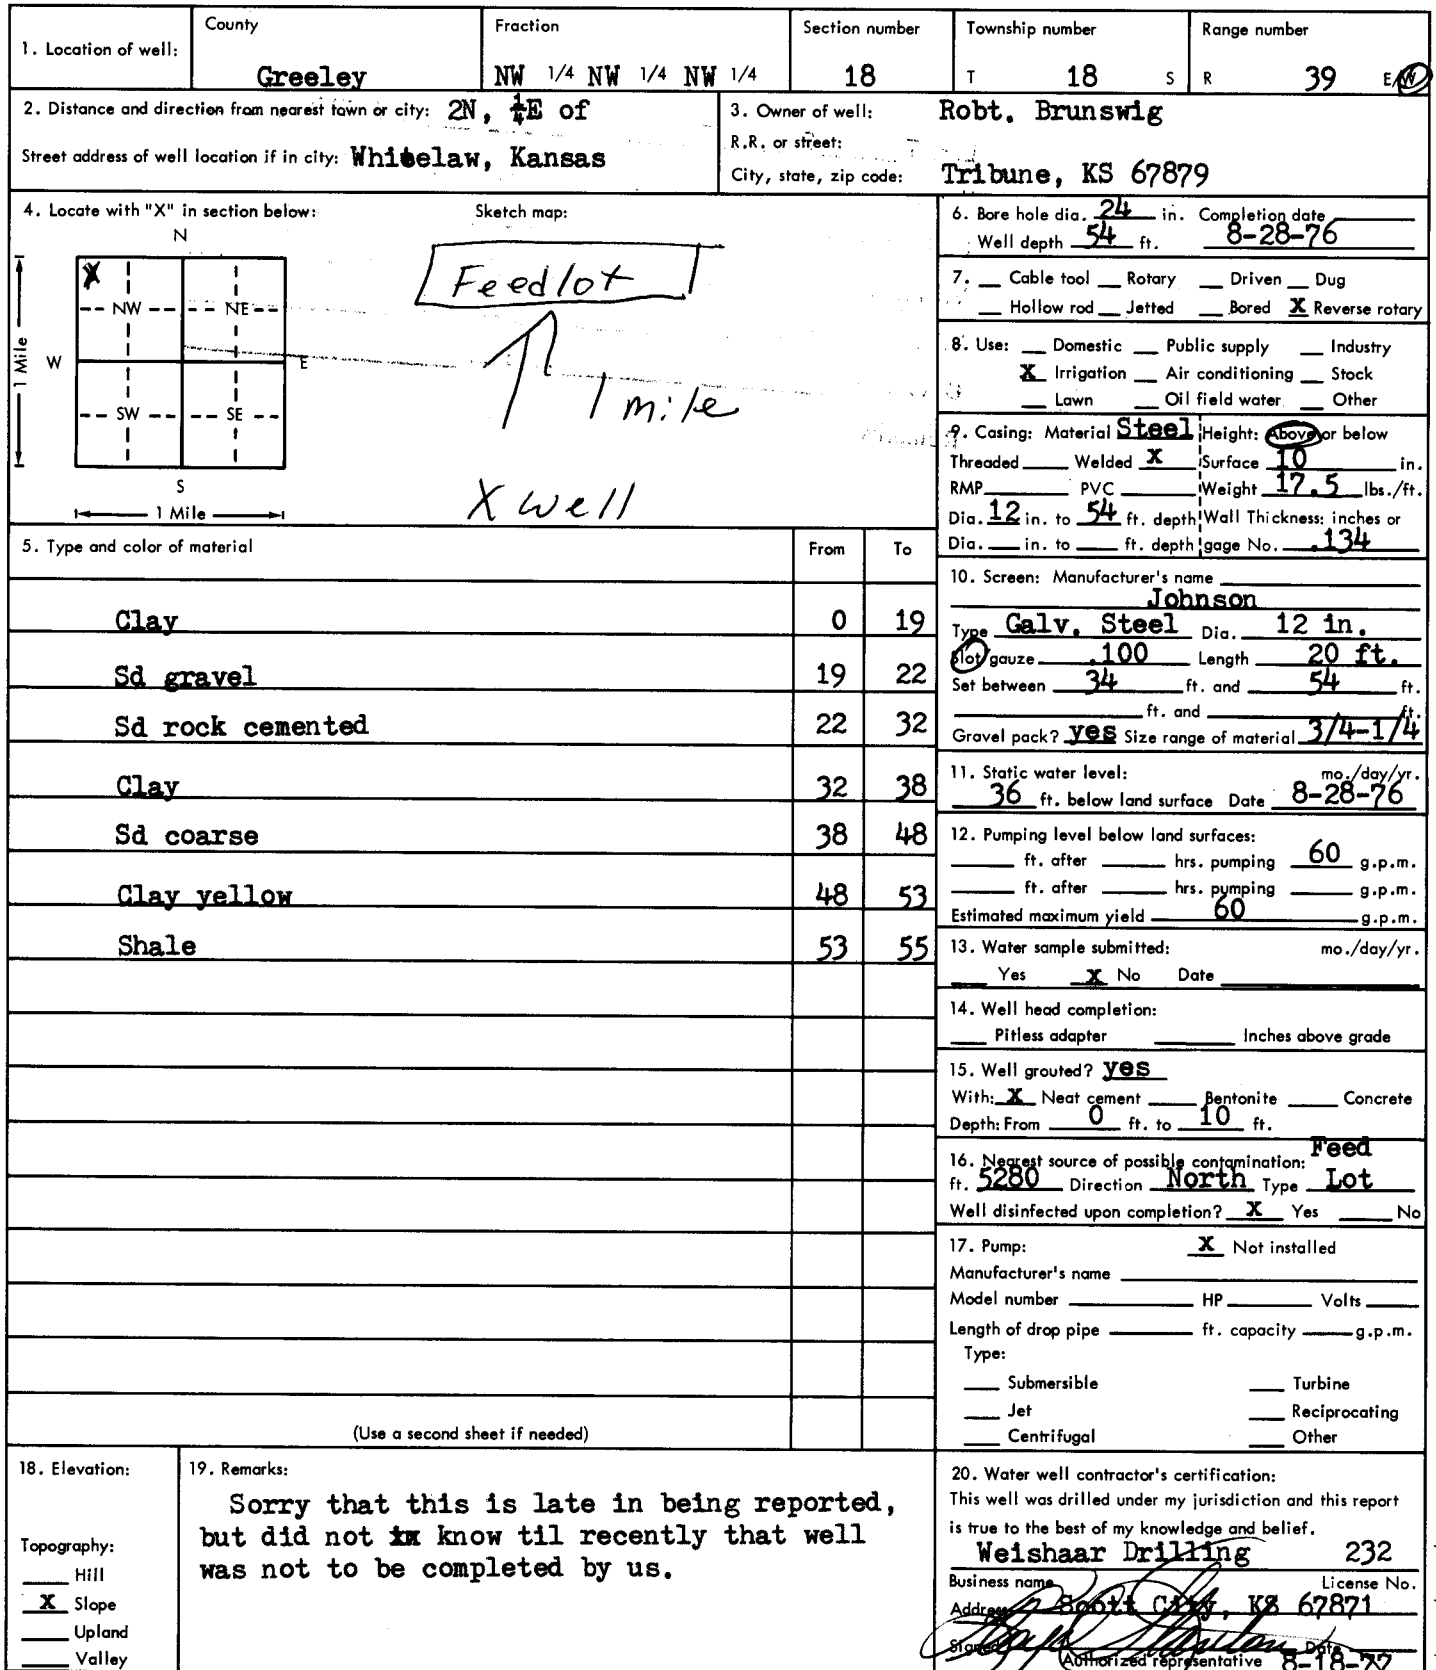 1. Location of well:
County
Greeley
Fraction
NW 1/4 NW 1/4 NW 1/4
Section number
18
Township number
T 18 S
Range number
R 39 E/W
2. Distance and direction from nearest town or city: 2N, ¼E of
Street address of well location if in city: Whitelaw, Kansas
3. Owner of well: Robt. Brunswig
R.R. or street:
City, state, zip code: Tribune, KS 67879
4. Locate with "X" in section below:
Sketch map:
N
X
NW NE
W E
SW SE
S
1 Mile
1 Mile
Feedlot
1 mile
X well
5. Type and color of material From To
Clay 0 19
Sd gravel 19 22
Sd rock cemented 22 32
Clay 32 38
Sd coarse 38 48
Clay yellow 48 53
Shale 53 55
(Use a second sheet if needed)
6. Bore hole dia. 24 in. Completion date
Well depth 54 ft. 8-28-76
7. __ Cable tool __ Rotary __ Driven __ Dug
__ Hollow rod __ Jetted __ Bored X Reverse rotary
8. Use: __ Domestic __ Public supply __ Industry
X Irrigation __ Air conditioning __ Stock
__ Lawn __ Oil field water __ Other
9. Casing: Material Steel Height: Above or below
Threaded __ Welded X Surface 10 in.
RMP __ PVC __ Weight 17.5 lbs./ft.
Dia. 12 in. to 54 ft. depth Wall Thickness: inches or
Dia. __ in. to __ ft. depth gage No. .134
10. Screen: Manufacturer's name
Johnson
Type Galv. Steel Dia. 12 in.
Slot/gauze .100 Length 20 ft.
Set between 34 ft. and 54 ft.
__ ft. and __ ft.
Gravel pack? yes Size range of material 3/4-1/4
11. Static water level: mo./day/yr.
36 ft. below land surface Date 8-28-76
12. Pumping level below land surfaces:
__ ft. after __ hrs. pumping 60 g.p.m.
__ ft. after __ hrs. pumping __ g.p.m.
Estimated maximum yield 60 g.p.m.
13. Water sample submitted: mo./day/yr.
__ Yes X No Date
14. Well head completion:
__ Pitless adapter __ Inches above grade
15. Well grouted? yes
With: X Neat cement __ Bentonite __ Concrete
Depth: From 0 ft. to 10 ft.
16. Nearest source of possible contamination: Feed
ft. 5280 Direction North Type Lot
Well disinfected upon completion? X Yes __ No
17. Pump: X Not installed
Manufacturer's name
Model number __ HP __ Volts
Length of drop pipe __ ft. capacity __ g.p.m.
Type:
__ Submersible __ Turbine
__ Jet __ Reciprocating
__ Centrifugal __ Other
18. Elevation:
Topography:
__ Hill
X Slope
__ Upland
__ Valley
19. Remarks:
Sorry that this is late in being reported,
but did not know til recently that well
was not to be completed by us.
20. Water well contractor's certification:
This well was drilled under my jurisdiction and this report
is true to the best of my knowledge and belief.
Weishaar Drilling 232
Business name License No.
Address Scott City, KS 67871
Signed Date 8-18-77
Authorized representative